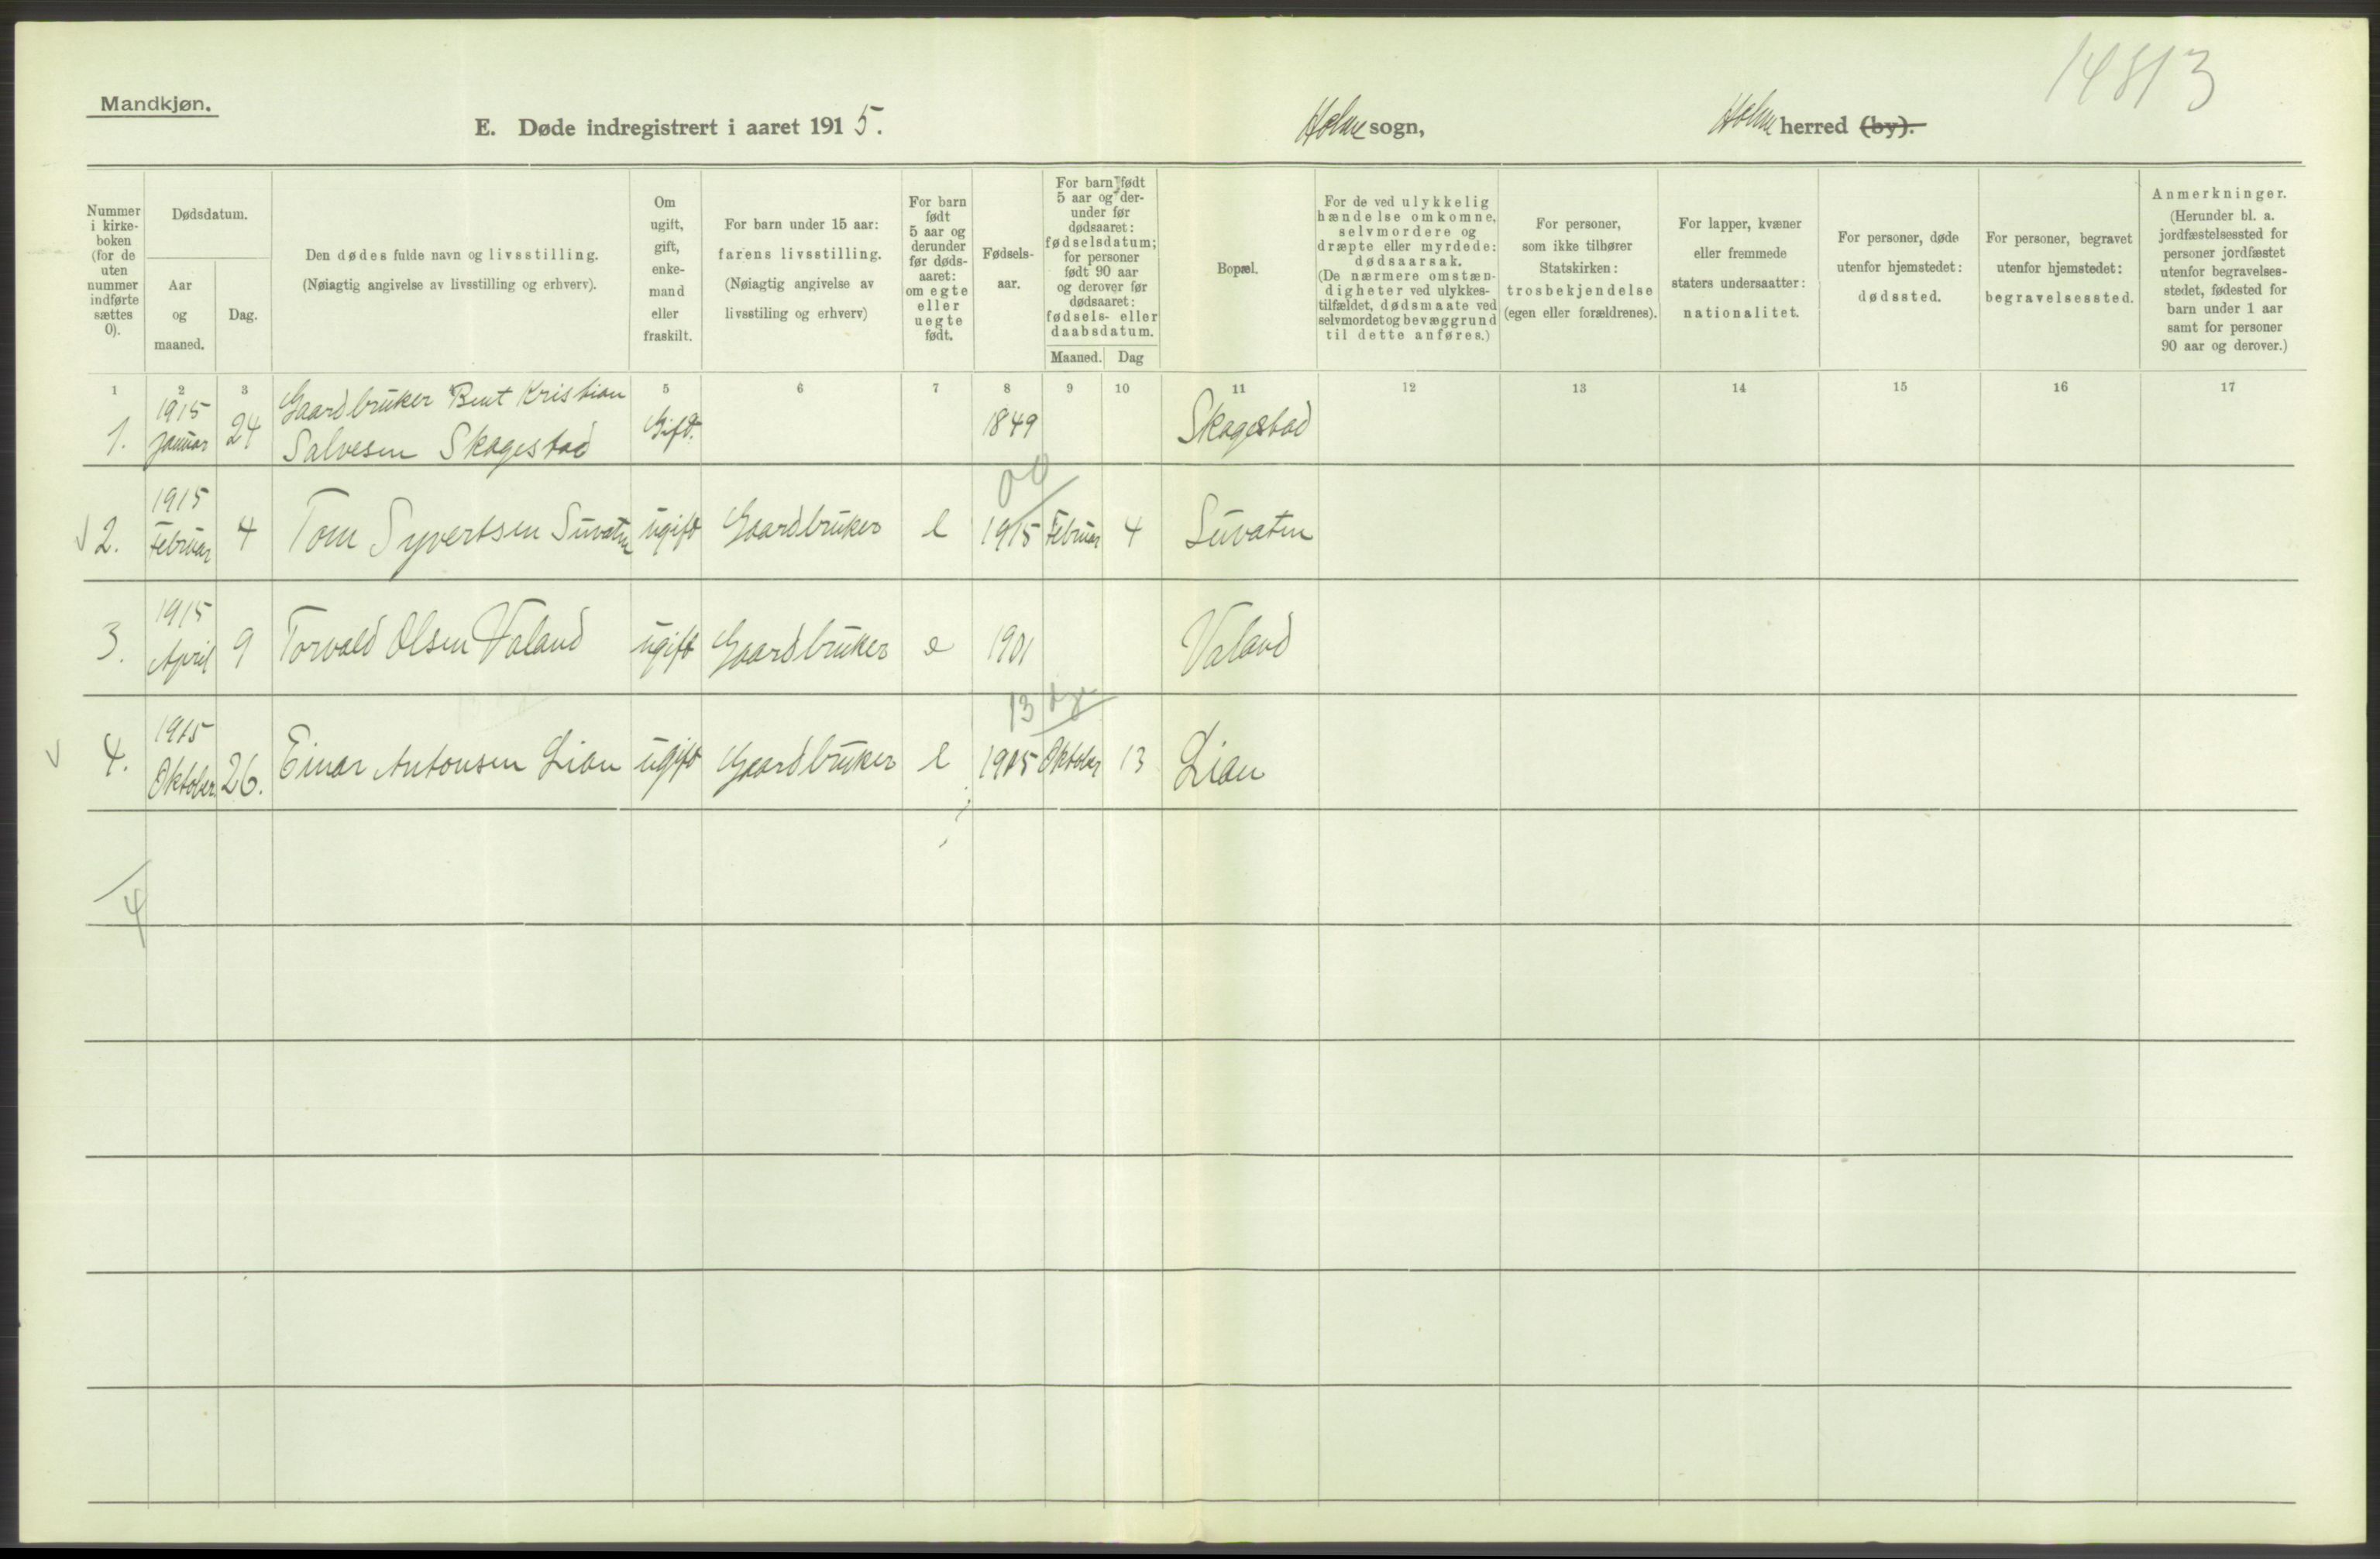 14813
Mandkjøn.
E. Døde indregistrert i aaret 1915. Holme sogn, Holme herred (by).
Nummer i kirkeboken (for de uten nummer indførte sættes 0).
Dødsdatum.
Aar og maaned.
Dag.
Den dødes fulde navn og livsstilling.
(Nøiagtig angivelse av livsstilling og erhverv).
Om ugift, gift, enkemand eller fraskilt.
For barn under 15 aar:
farens livsstilling.
(Nøiagtig angivelse av livsstiling og erhverv)
For barn født 5 aar og derunder før dødsaaret: om egte eller uegte født.
Fødselsaar.
For barn født 5 aar og derunder før dødsaaret: fødselsdatum; for personer født 90 aar og derover før dødsaaret: fødsels- eller daabsdatum.
Maaned. Dag
Bopæl.
For de ved ulykkelig hændelse omkomne, selvmordere og dræpte eller myrdede: dødsaarsak.
(De nærmere omstændigheter ved ulykkestilfældet, dødsmaate ved selvmordet og bevæggrund til dette anføres.)
For personer, som ikke tilhører Statskirken: trosbekjendelse (egen eller forældrenes).
For lapper, kvæner eller fremmede staters undersaatter: nationalitet.
For personer, døde utenfor hjemstedet: dødssted.
For personer, begravet utenfor hjemstedet: begravelsessted.
Anmerkninger.
(Herunder bl. a. jordfæstelsessted for personer jordfæstet utenfor begravelsesstedet, fødested for barn under 1 aar samt for personer 90 aar og derover.)
1 2 3 5 6 7 8 9 10 11 12 13 14 15 16 17
1. 1915 Januar 24 Gaardbruker Bent Kristian Salvesen Skagestad Gift. 1849 Skagestad
00
2. 1915 Februar 4 Tom Syvertsen Suvatn ugift Gaardbruker e 1915 Februar 4 Suvatn
3. 1915 April 9 Torvald Olsen Valand ugift Gaardbruker e 1901 Valand
13
4. 1915 Oktober 26. Einar Antonsen Lian ugift Gaardbruker e 1915 Oktober 13 Lian
4